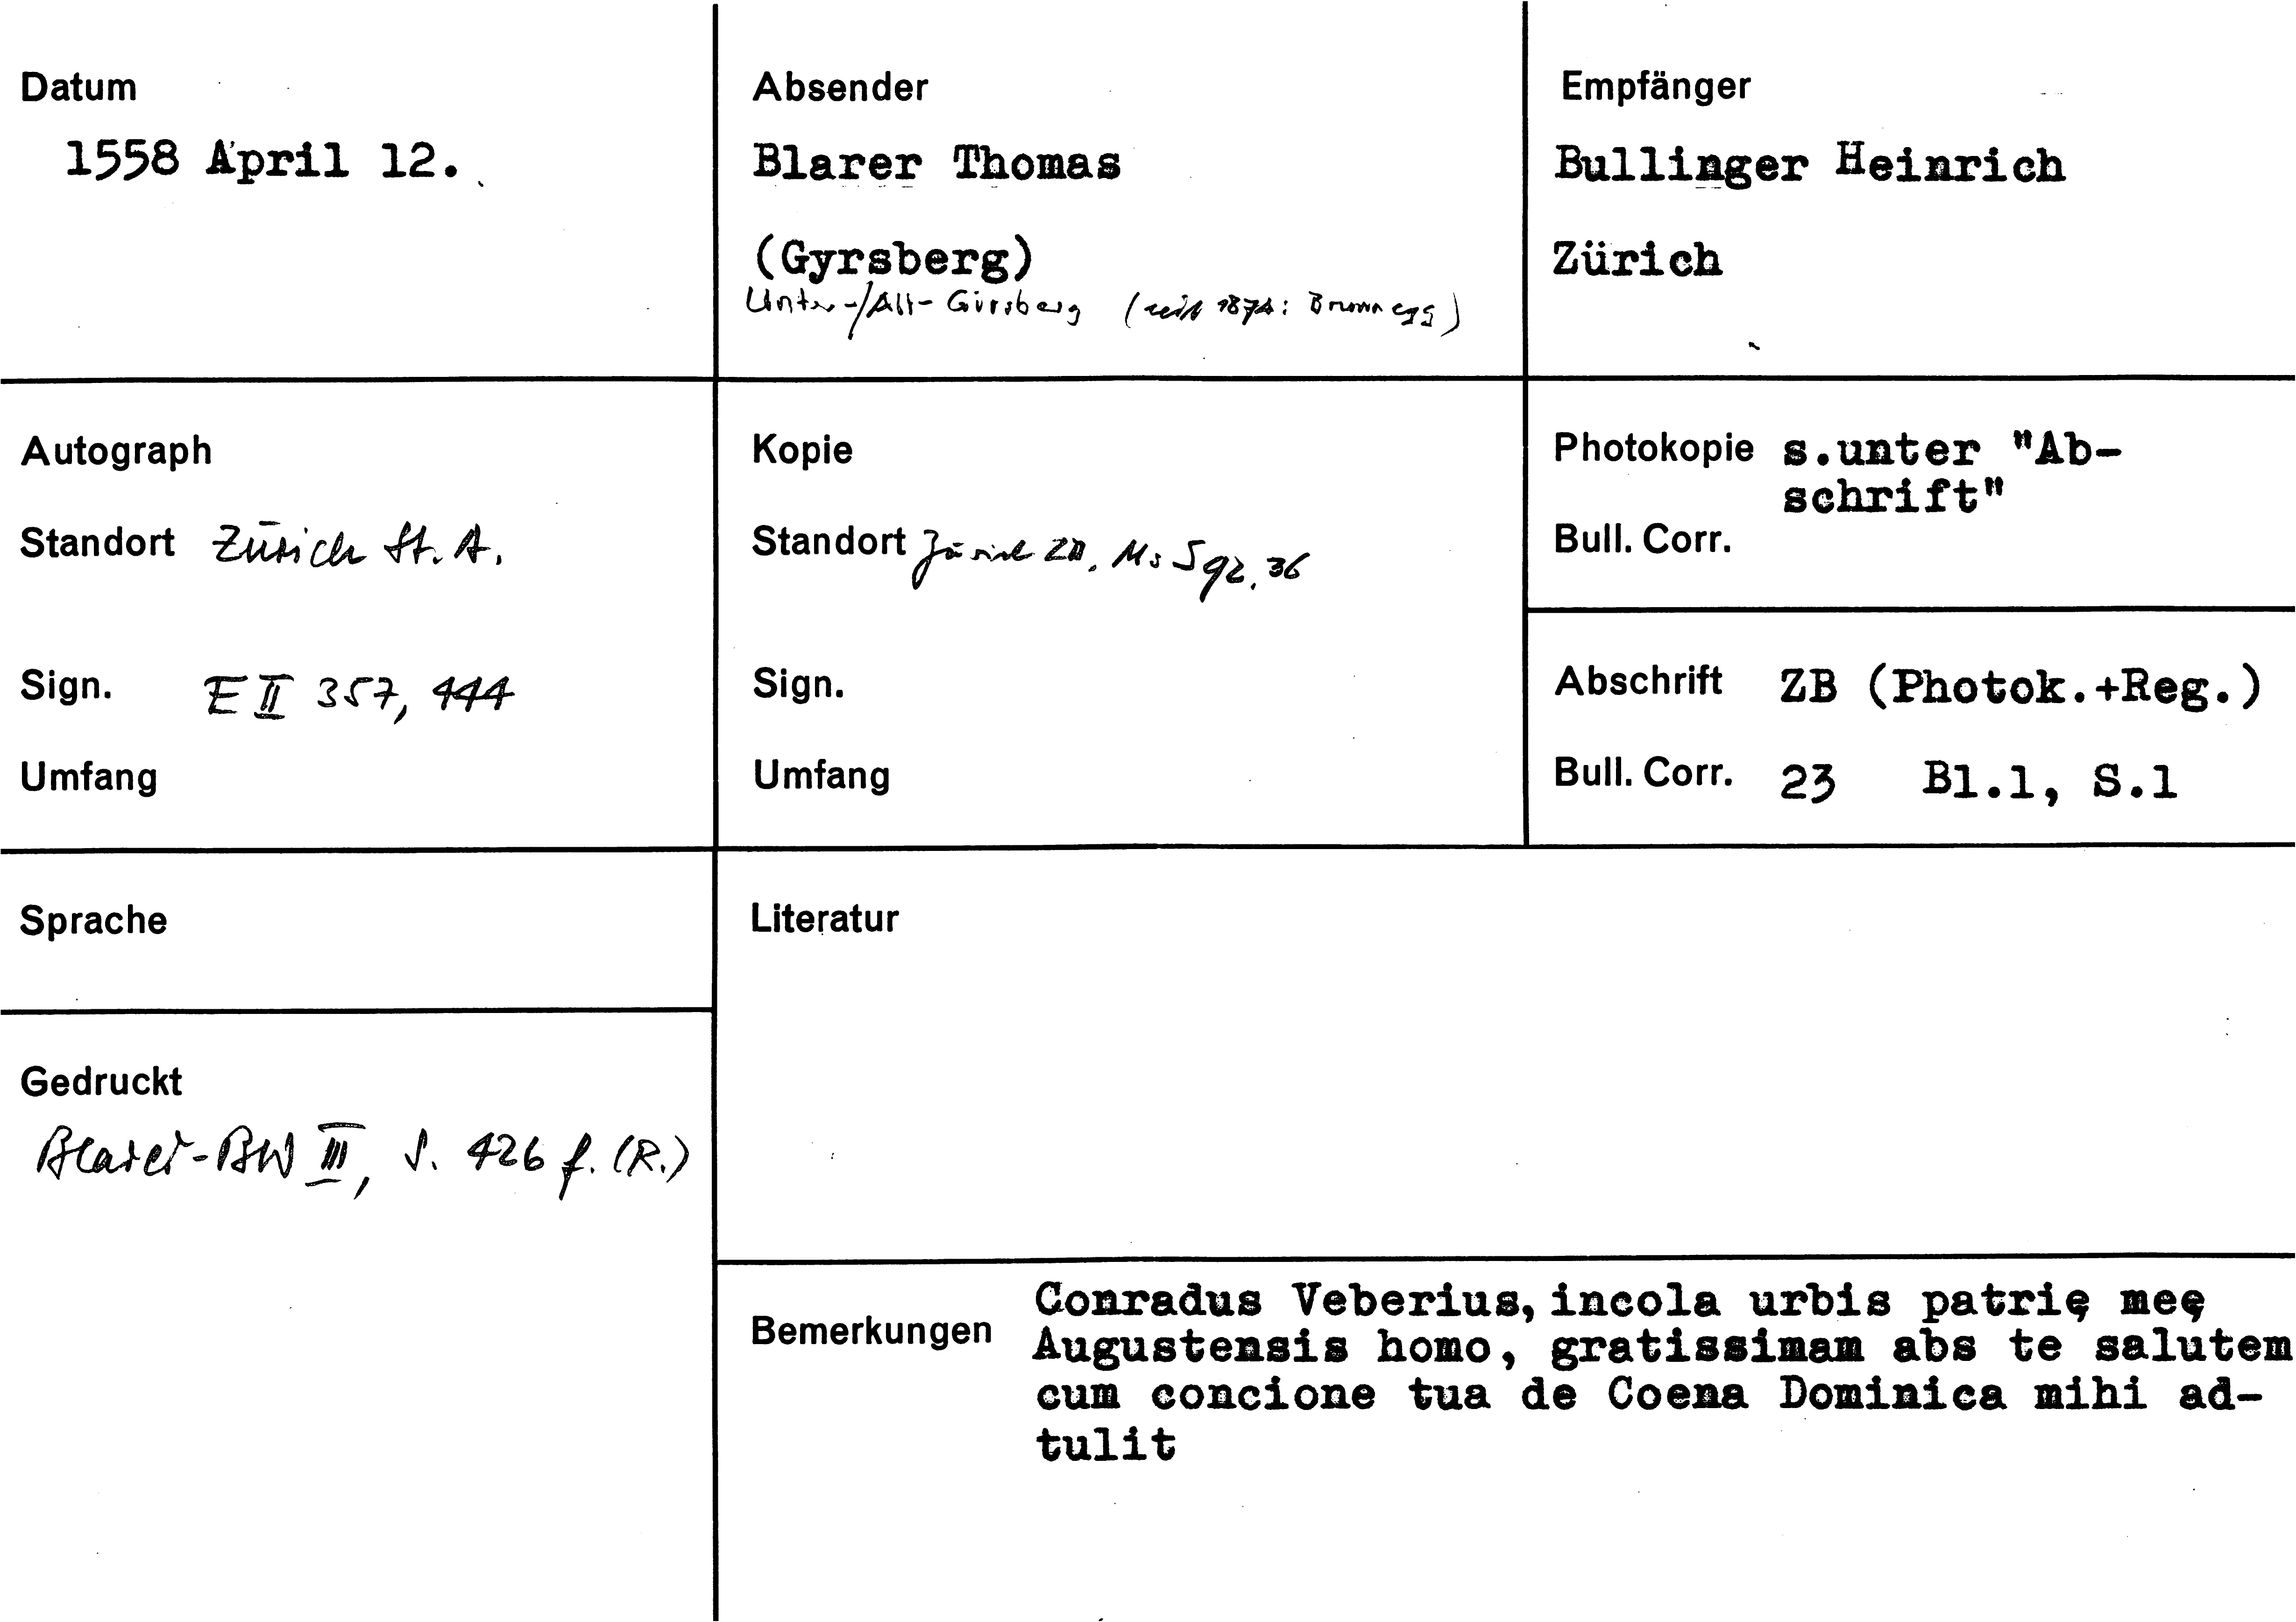 Datum
1558 April 12.
Absender
Blarer Thomas
(Gyrsberg)
Unter-/Alt-Girsberg (seit 1874: Brunnegg)
Empfänger
Bullinger Heinrich
Zürich
Autograph
Standort Zürich St. A.
Sign. E II 357, 444
Umfang
Kopie
Standort Zürich ZB, Ms S 92, 36
Sign.
Umfang
Photokopie s.unter "Ab-
schrift"
Bull. Corr.
Abschrift ZB (Photok.+Reg.)
Bull. Corr. 23 Bl.1, S.1
Sprache
Literatur
Gedruckt
Blarer-BW III, S. 426 f. (R.)
Bemerkungen
Conradus Veberius, incola urbis patrię meę
Augustensis homo, gratissimam abs te salutem
cum concione tua de Coena Dominica mihi ad-
tulit